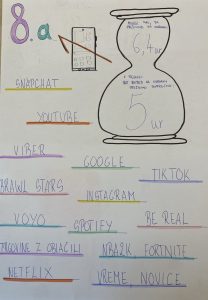 8.a
6,4 ur
5 ur
SNAPCHAT
YOUTUBE
VIBER
GOOGLE
TIKTOK
BRAWL STARS
INSTAGRAM
VOYO
SPOTIFY
BE REAL
TRGOVINE Z OBLAČILI
NBA2K, FORTNITE
NETFLIX
VREME, NOVICE